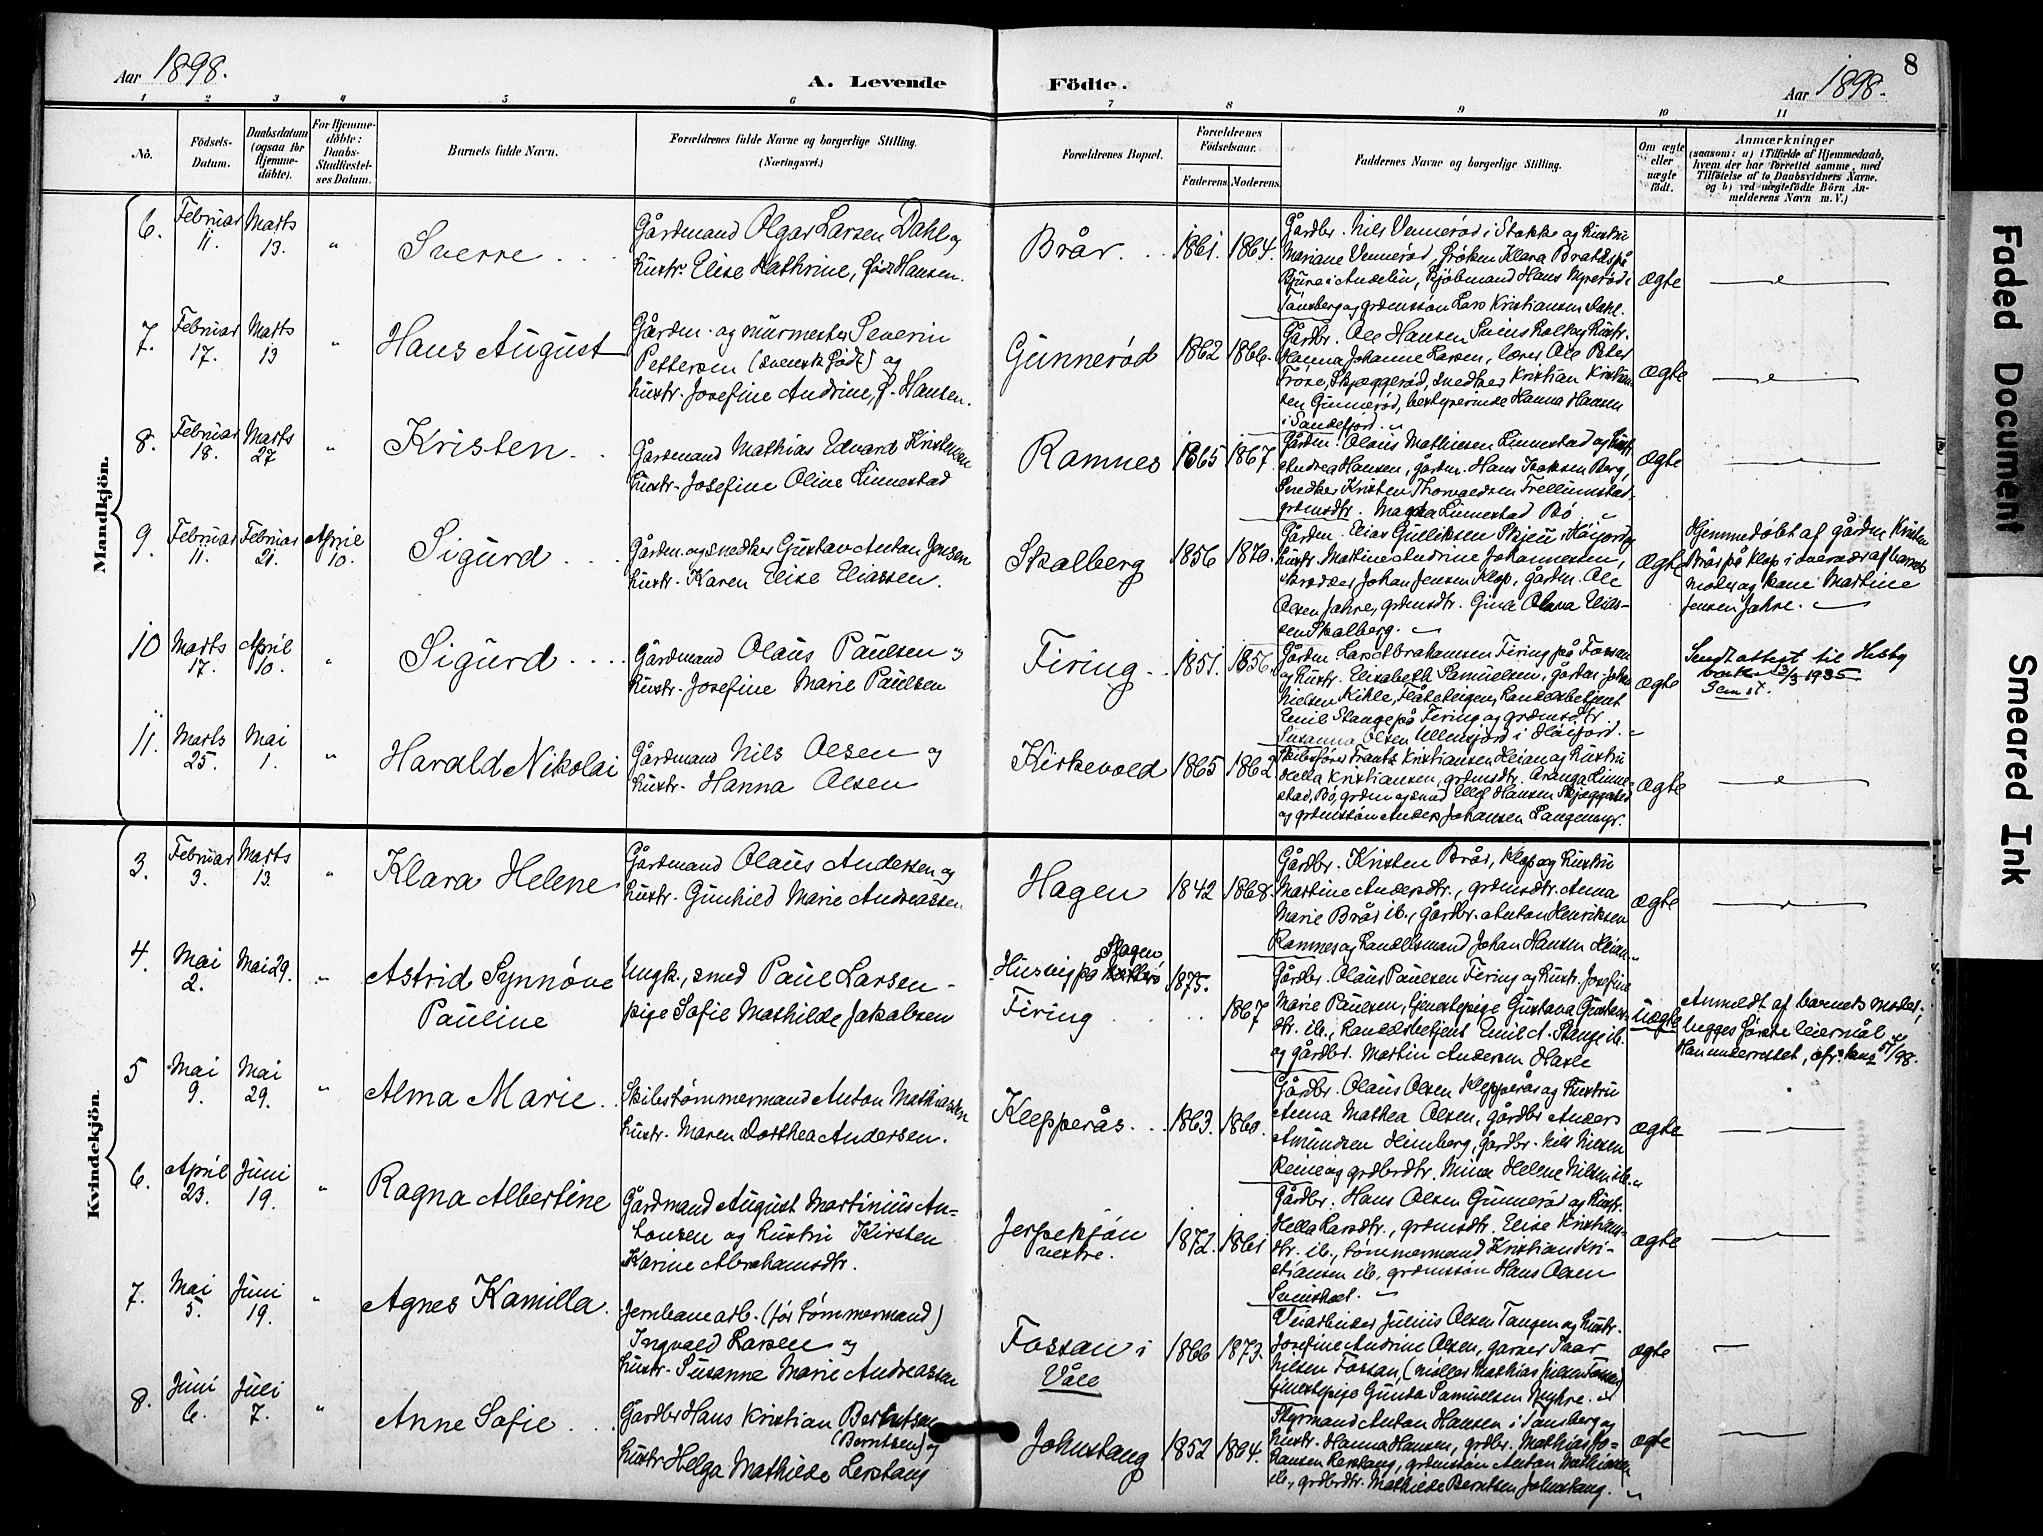 8
Aar 1898.
A. Levende
Födte.
Aar 1898.
1 2 3 4 5 6 7 8 9 10 11
No.
Födsels-
Datum.
Daabsdatum
(ogsaa for
Hjemme-
döbte).
For Hjemme-
döbte:
Daabs-
Stadfæstel-
ses Datum.
Barnets fulde Navn.
Forældrenes fulde Navne og borgerlige Stilling.
(Næringsvei.)
Forældrenes Bopæl.
Forældrenes
Födselsaar.
Faderens.
Moderens.
Faddernes Navne og borgerlige Stilling.
Om ægte
eller
uægte
födt.
Anmærkninger
(saasom: a) i Tilfælde af Hjemmedaab,
hvem der har forrettet samme, med
Tilföielse af to Daabsvidners Navne,
og b) ved uægtefödte Börn An-
melderens Navn m. V.)
Mandkjön.
6.
Februar
11.
Marts
13.
"
Sverre
Gårdmand Olgar Larsen Dahl og
hustr. Elise Kathrine, født Hansen.
Brår.
1861.
1864.
Gårdbr. Nils Vennerød i Stokke og hustru
Mariane Vennerød, frøken Klara
Bjune i Andebu, kjøbmand Hans Myrerød i
Tønsberg og grdmssøn Lars Kristiansen Dahl.
ægte
7.
Februar
17.
Marts
13
"
Hans August
Gårdm. og murmester Severin
Pettersen (svensk født) og
hustr. Josefine Andrine, f. Hansen.
Gunnerød
1862
1866.
Gårdbr. Ole Hansen Svinsholt og hustr.
Hanna Johanne Larsen, lærer Ole Peter
Trøse, Skjeggerød, snedker Kristian Kristian-
sen Gunnerød, bestyrerinde Hanna Hansen
i Sandefjord. "
ægte
8.
Februar
18.
Marts
27
"
Kristen
Gårdmand Mathias Edvard Kristensen
hustr. Josefine Oline Linnestad
Ramnes
1865
1867
Gårdm. Olaus Mathisen Linnestad og hustr.
Andrea Hansen, gårdm. Hans Isaksen Berg,
Snedker Kristen Thorvaldsen Trellumstad,
grdmsdtr. Linnestad Bö
ægte
9.
Februar
11.
Februar
21.
April
10.
Sigurd
Gårdm. og snedker Gustav Anton Jensen
hustr. Karen Elise Eliassen.
Skalberg
1856
1870.
Gårdm. Elias Gulliksen Skjeau i Høijord og
hustr. Mathine Andrine Johannessen,
skrædder Johan Jensen Klop, gårdm. Ole
Olsen Jahre, grdmsdtr. Gina Olava Elias-
sen Skalberg.
ægte
Hjemmedøbt af gårdm Kristen
Brår på Klop i overvær af barnets
moder og kone Martine
Jensen Jahre.
10
Marts
17.
April
10.
"
Sigurd
Gårdmand Olaus Paulsen og
hustr. Josefine Marie Paulsen
Firing
1851.
1856.
Gårdm. Lars Abrahamsen Firing på Fossan
og hustr. Elisabeth Samuelsen,
Nielsen Kihle, Flåtsteigen, handelsbetjent
Emil Stange på Firing og grdmsdtr.
Susanna Olsen Ullensjord i Høijord.
ægte
Sendt attest til
13/3 1935
11.
Marts
25.
Mai
1.
"
Harald Nikolai
Gårdmand Nils Olsen og
hustr. Hanna Olsen
Kirkevold
1865
1862
Skibsfører Frantz Kristiansen Heian og hustru
Hella Kristiansen, grdmsdtr. Aranga Linne-
stad, Bö, grdm og smed Ellef Hansen
og grdmssøn Anders Johansen Langemyr.
ægte
Kvindekjön.
3.
Februar
3.
Marts
13.
"
Klara Helene
Gårdmand Olaus Andersen og
hustr. Gunhild Marie Andreassen
Hagen
1842
1868.
Gårdbr. Kristen Brår, Klop og hustru
Martine Andersdtr., grdmsdtr. Anna
Marie Brår ib., Gårdbr. Anton Henriksen
Ramnes og handelsmand Johan Hansen Heian
ægte
4.
Mai
2.
Mai 29.
"
Astrid Synnøve
Pauline
Ungk., smed Paul Larsen
pige Sofie Mathilde Jakobsen
Husvig på
Firing
1875.
1867
Gårdbr. Olaus Paulsen Firing og hustr. Josefine
Marie Paulsen, tjenestepige Gustava Gustavs-
dtr. ib., handelsbetjent Emil A. Stange ib.
og gårdbr. Martin Andersen Hasle
uægte
Anmeldt af barnets moder;
begges første leiermål
Han underrettet,
5
Mai
9.
Mai
29.
"
Alma Marie.
Skibstømmermand Anton Mathiassen
hustr. Maren Dorthea Andersen.
Klepperås
1863.
1860.
Gårdbr. Olaus Olsen Klepperås og hustru
Anna Mathea Olsen, gårdbr. Anders
Amundsen Heimberg, gårdbr. Nils Nilsen
Reine og grdbrdtr. Mina Helene Nilsen ib.
ægte
6.
April
23.
Juni
19.
"
Ragna Albertine
Gårdmand August Martinius An-
tonsen og hustru Kirsten
Karine Abrahamsdtr.
Jerpekjøn
vestre.
1872.
1861
Gårdbr. Hans Olsen Gunnerød og hustr.
Hella Larsdtr., grdmsdtr. Elise Kristians-
dtr. ib., tømmermand Kristian Kri-
stiansen ib., grdmssøn Hans Olsen
Svinsholt.
ægte
7.
Mai
5.
Juni
19.
"
Agnes Kamilla.
Jernbanearb. (før tømmermand)
Ingvald Larsen og
hustr. Susanne Marie Andreassen
Fossan i
Våle
1866
1873.
Veiarbeider Julius Olsen Tangen og hustr.
Josefine Andrine Olsen, garver Paar
Nilsen Fossan, (møller Mathias
tjenestepige Gunda Samuelsen Myhre.
ægte
8.
Juni
6.
Juli
7.
"
Anne Sofie
Gårdbr Hans Kristian Berntsen
(Berntsen) og
hustr Helga Mathilde Lerstang
Johnstang
1852
1864.
Styrmand Anton Hansen i Tønsberg og
hustr. Hanna Hansen, grdbr. Mathias Jo-
hansen Lerstang, grdmssøn Anton Mathiassen
ib., grdbrdtr. Mathilde Berntsen Johnstang. "
ægte
Faded Document
Smeared Ink